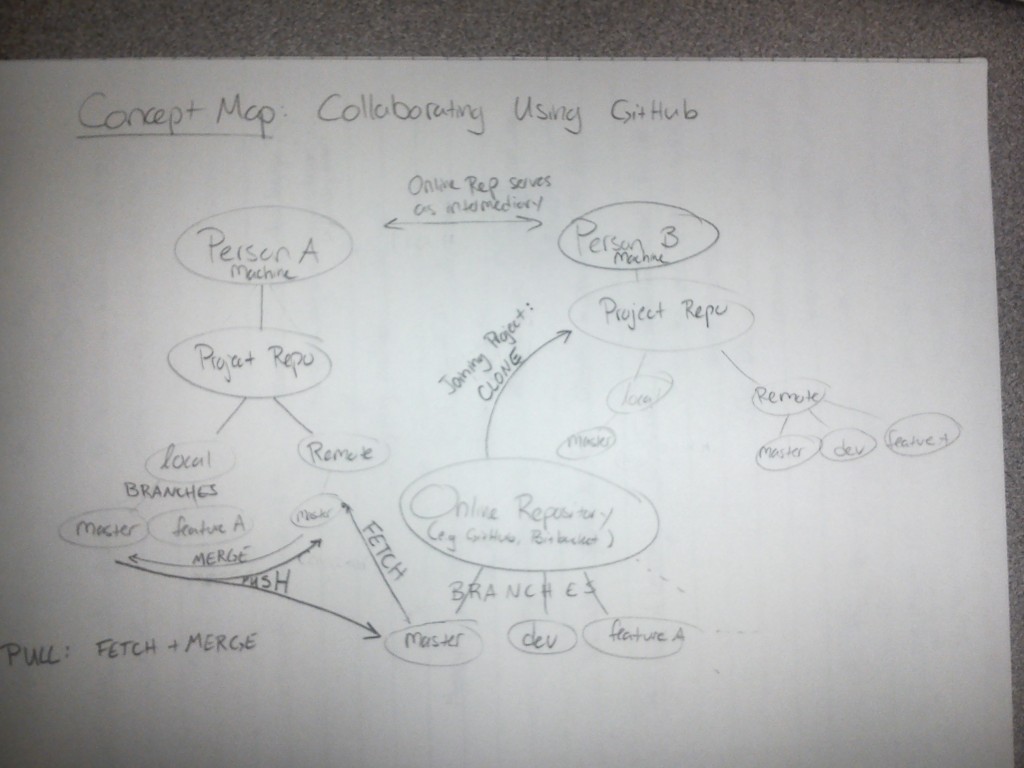 Concept Map: Collaborating Using GitHub
Online Rep serves
as intermediary
Person A
Machine
Person B
Machine
Project Repo
Project Repo
Joining Project:
CLONE
local
Remote
local
Remote
BRANCHES
master
feature A
master
master
master
dev
feature A
Online Repository
(eg GitHub, Bitbucket)
MERGE
PUSH
FETCH
BRANCHES
master
dev
feature A
PULL: FETCH + MERGE